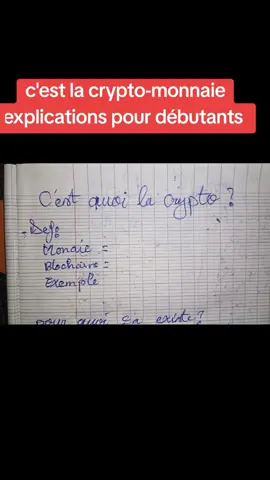 c'est la crypto-monnaie
explications pour débutants
C'est quoi la crypto ?
- Def:
Monaie =
Blochaire =
Exemple
pour quoi ça existe ?